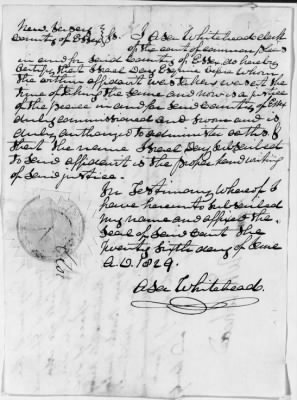 New Jersey } ss. I Asa Whitehead clerk
County of Essex of the court of common pleas
in and for said County of Essex do hereby
certify that Israel Day Esquire before whom
the within affidavit was taken was at the
time of taking the same and now is a Justice
of the peace in and for said County of Essex
duly commissioned and sworn and is
duly authorized to administer oaths &
that the name Israel Day subscribed
to said affidavit is the proper hand writing
of said justice.
In Testimony whereof I
have hereunto subscribed
my name and affixed the
seal of said Court this
twenty sixth day of June
A.D. 1829.
Asa Whitehead.